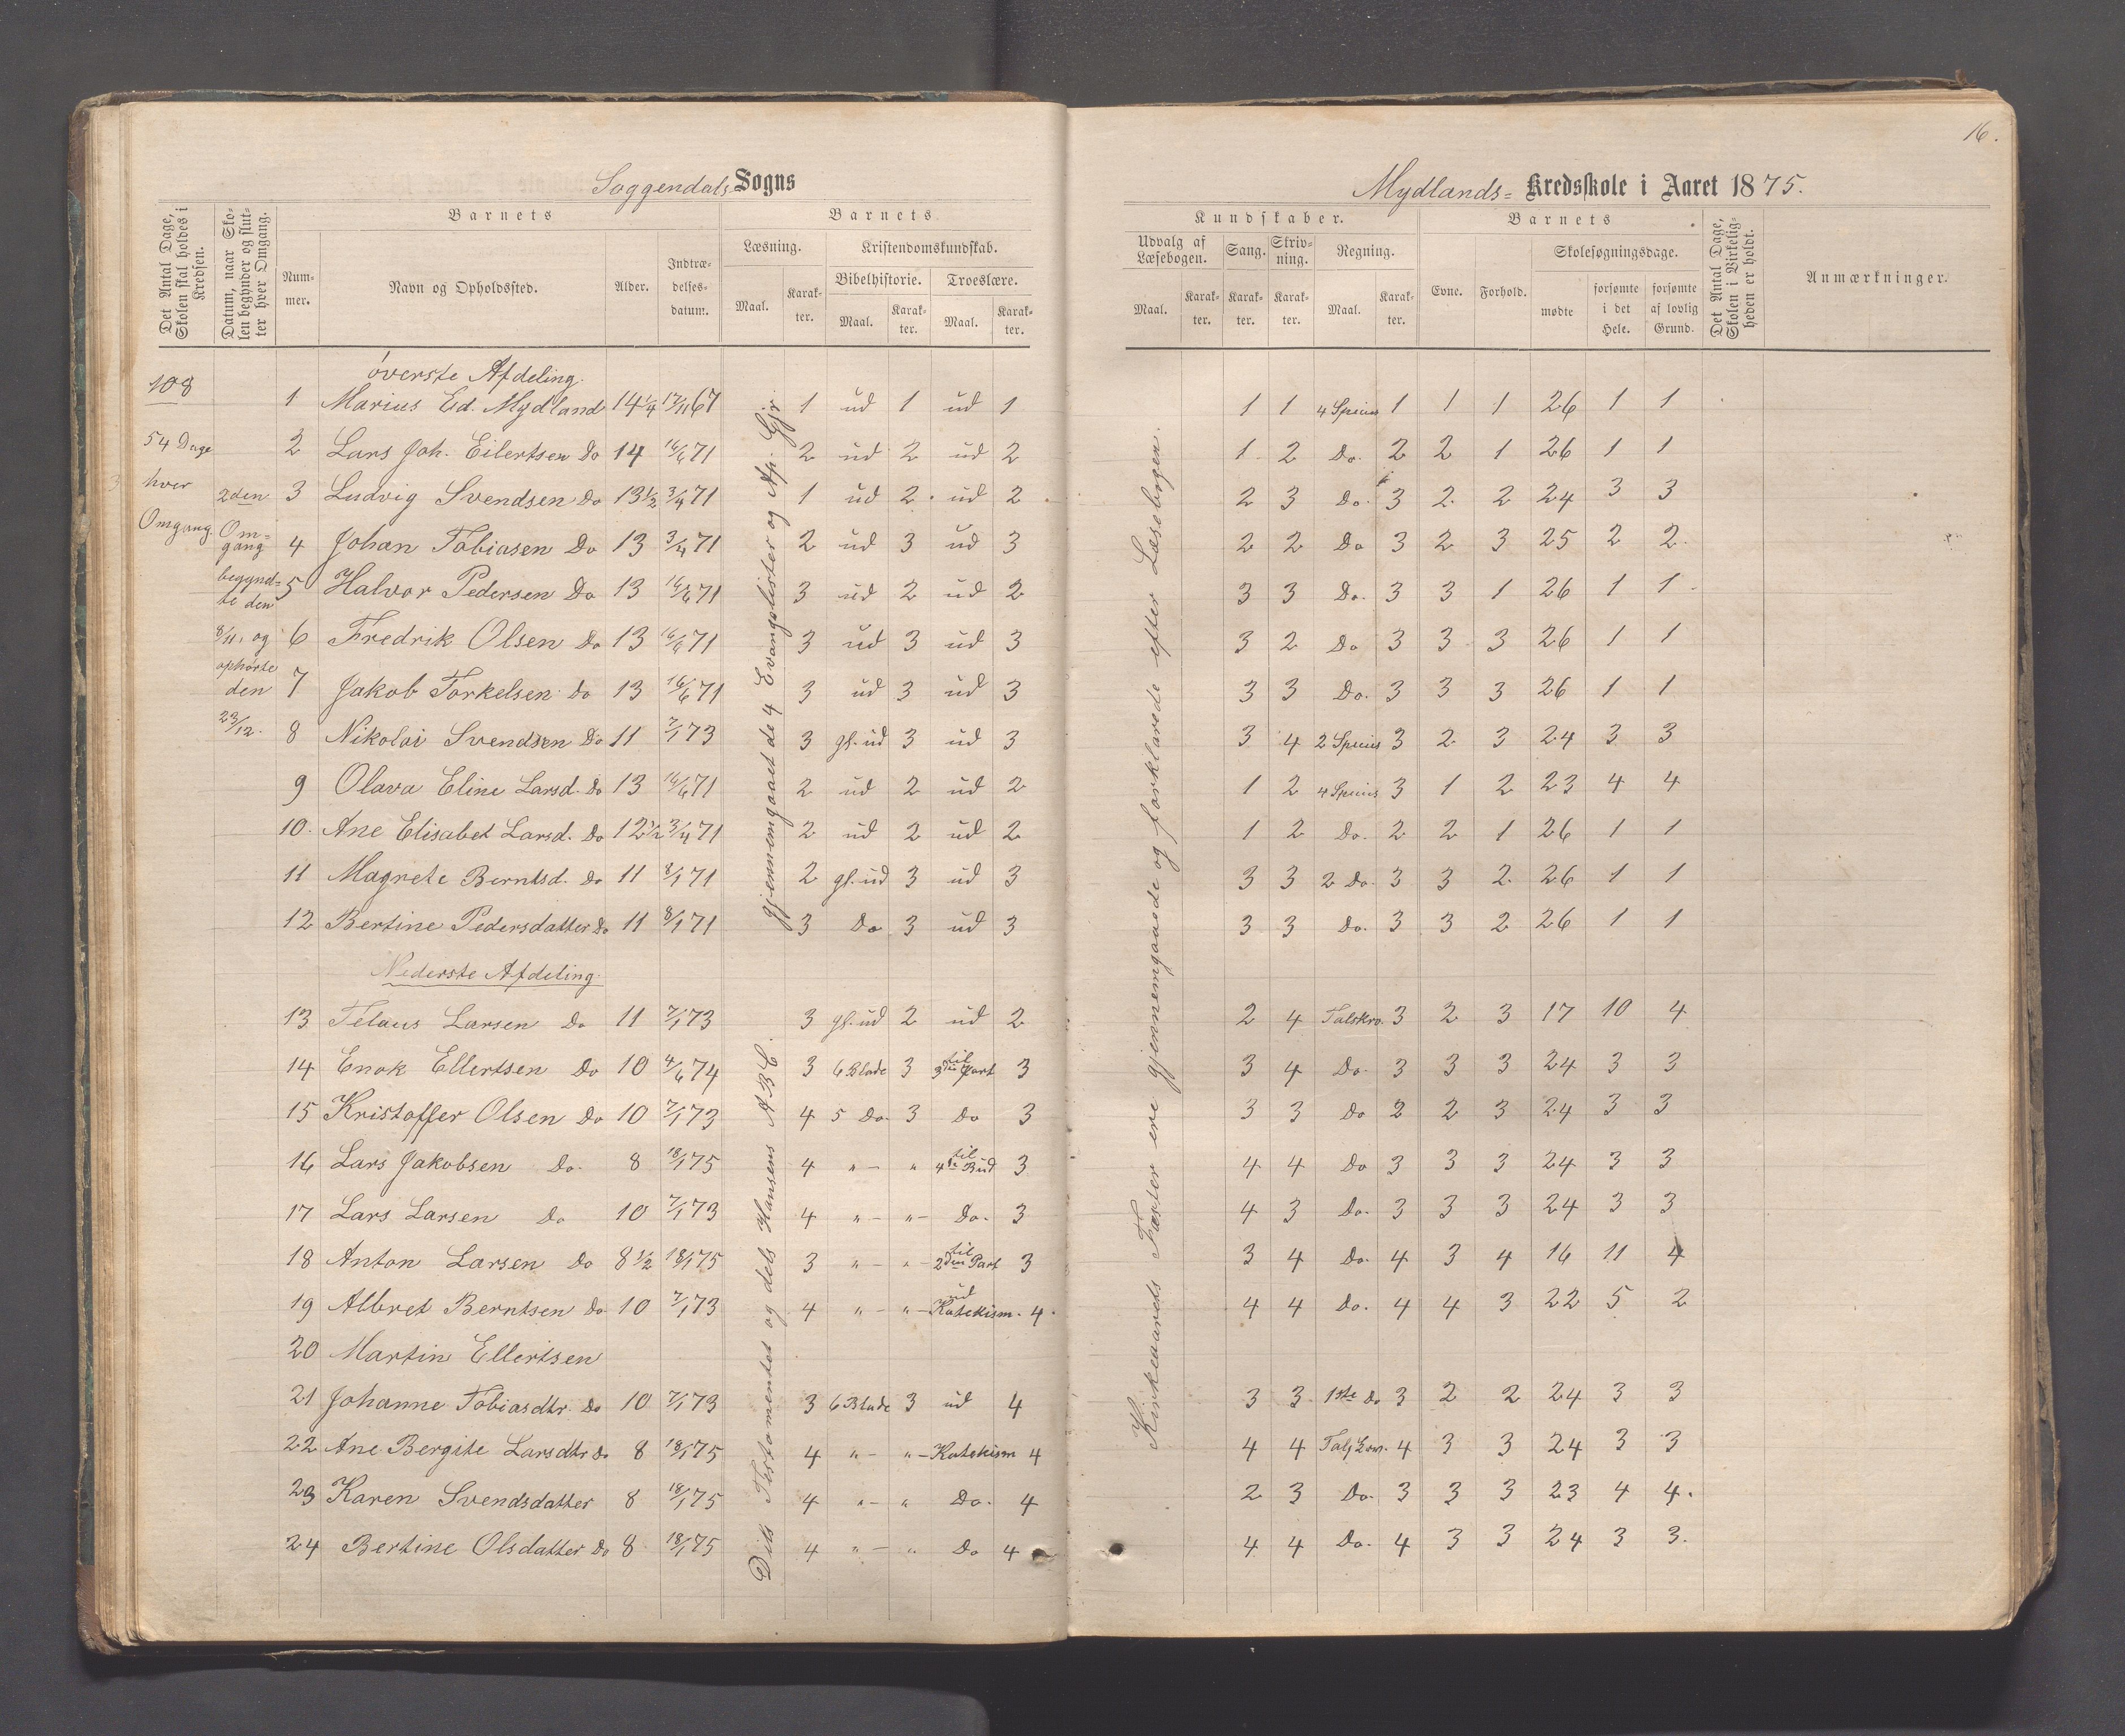 16.
Soggendals Sogns
Mydlands= Kredsskole i Aaret 1875.
Det Antal Dage, Skolen skal holdes i Kredsen.
Datum, naar Skolen begynder og slutter hver Omgang.
Barnets
Nummer.
Navn og Opholdssted.
Alder.
Indtrædelsesdatum.
Barnets
Læsning.
Maal.
Karakter.
Kristendomskundskab.
Bibelhistorie.
Maal.
Karakter.
Troeslære.
Maal.
Karakter.
Kundskaber.
Udvalg af Læsebogen.
Maal.
Karakter.
Sang.
Karakter.
Skrivning.
Karakter.
Regning.
Maal.
Karakter.
Barnets
Evne.
Forhold.
Skolesøgningsdage.
mødte
forsømte i det Hele.
forsømte af lovlig Grund.
Det Antal Dage, Skolen i Virkeligheden er holdt.
Anmærkninger.
108
54 Dage
hver
Omgang.
2den
Om=
gang
begynd=
te den
8/11. og
ophørte
den
23/12.
gjennemgaaet de 4 Evangelister og Ap. Gjr.
Dels Testamentet og dels Hansens ABC.
Kirkeaarets Tæxter ere gjennemgaaede og forklarede efter Læsebogen.
øverste Afdeling.
1 Marius Ed. Mydland 14 1/4 17/11 67 1 ud 1 ud 1 1 1 4 Specius 1 1 1 26 1 1
2 Lars Joh. Eilertsen Do 14 16/6 71 2 ud 2 ud 2 1 2 Do. 2 2 1 26 1 1
3 Ludvig Svendsen Do 13 1/2 3/4 71 1 ud 2 ud 2 2 3 Do. 3 2 2 24 3 3
4 Johan Tobiasen Do 13 3/4 71 2 ud 3 ud 3 2 2 Do 3 2 3 25 2 2
5 Halvor Pedersen Do 13 16/6 71 3 ud 2 ud 2 3 3 Do. 3 3 1 26 1 1
6 Fredrik Olsen Do 13 16/6 71 3 ud 3 ud 3 3 2 Do 3 3 3 26 1 1
7 Jakob Torkelsen Do 13 16/6 71 3 ud 3 ud 3 3 3 Do. 3 3 3 26 1 1
8 Nikolai Svendsen Do 11 7/1 73 3 gl. ud 3 ud 3 3 4 2 Specius 3 2 3 24 3 3
9 Olava Eline Larsd. Do 13 16/6 71 2 ud 2 ud 2 1 2 4 Specius 3 1 2 23 4 4
10. Ane Elisabet Larsd. Do 12 1/2 3/4 71 2 ud 2 ud 2 1 2 Do. 2 2 1 26 1 1
11 Magrete Berntsd. Do 11 8/1 71 2 gl. ud 3 ud 3 3 3 2 Do. 3 3 2 26 1 1
12 Bertine Pedersdatter Do 11 8/1 71 3 Do 3 ud 3 3 3 Do. 3 3 2 26 1 1
Nederste Afdeling.
13 Telaus Larsen Do 11 7/1 73 3 gl. ud 2 ud 2 2 4 Talskrv. 3 2 3 17 10 4
14 Enok Ellertsen Do 10 4/6 74 3 6 Blade 3 til 3die Part 3 3 4 Do 3 3 3 24 3 3
15 Kristoffer Olsen Do 10 7/1 73 4 5 Do. 3 Do 3 3 3 Do 2 2 3 24 3 3
16 Lars Jakobsen Do. 8 18/1 75 4 " – " til 4de Bud 3 4 4 Do 3 3 3 24 3 3
17 Lars Larsen Do 10 7/1 73 4 " – " – Do. 3 4 3 Do. 3 3 3 24 3 3
18 Anton Larsen Do 8 1/2 18/1 75 3 " – " – til 2den Part 3 3 4 Do. 4 3 4 16 11 4
19 Albret Berntsen Do 10 7/1 73 4 " – " – ud Katekism. 4. 4 4 Do. 4 4 3 22 5 2
20 Martin Ellertsen
21 Johanne Tobiasdtr. Do 10 7/1 73 3 6 Blade 3 ud 4 3 3 1ste Do 3 2 2 24 3 3
22 Ane Bergite Larsdtr Do 8 18/1 75 4 " – " – Katekism 4 4 4 4 3 3 24 3 3
23 Karen Svendsdatter 8 18/1 75 4 " – " Do. 4 2 3 Do. 3 3 3 23 4 4.
24 Bertine Olsdatter Do 8 18/1 75 4 " – " Do 4 4 4 Do. 4 3 3 24 3 3.